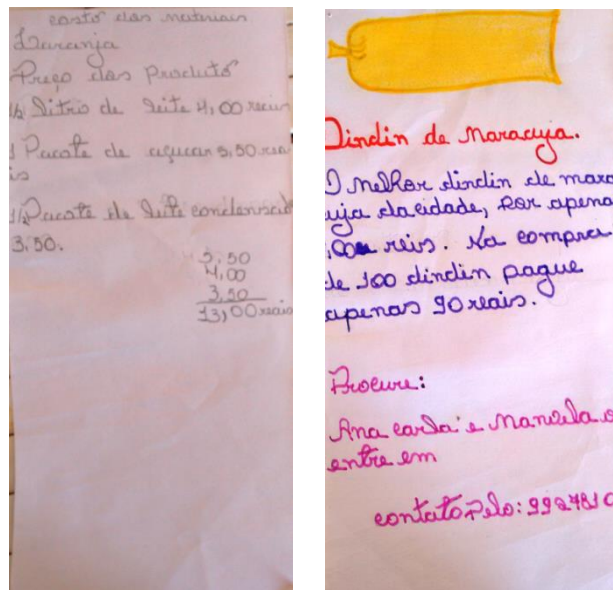 custo das materiais
Laranja
Preço dos Produto
1/2 Litro de leite 4,00 reais
1 Pacote de açucar 5,50 rea
is
1/2 Pacote de leite condensado
3,50.
5,50
4,00
3,50
13,00 reais
Dindin de Maracuja.
O melhor dindin de marac
uja da cidade, por apena
,00 reis. Na compra
de 100 dindin pague
apenas 90 reais.
Procure:
Ana carla e Manuela o
entre em
contato Pelo: 9927810